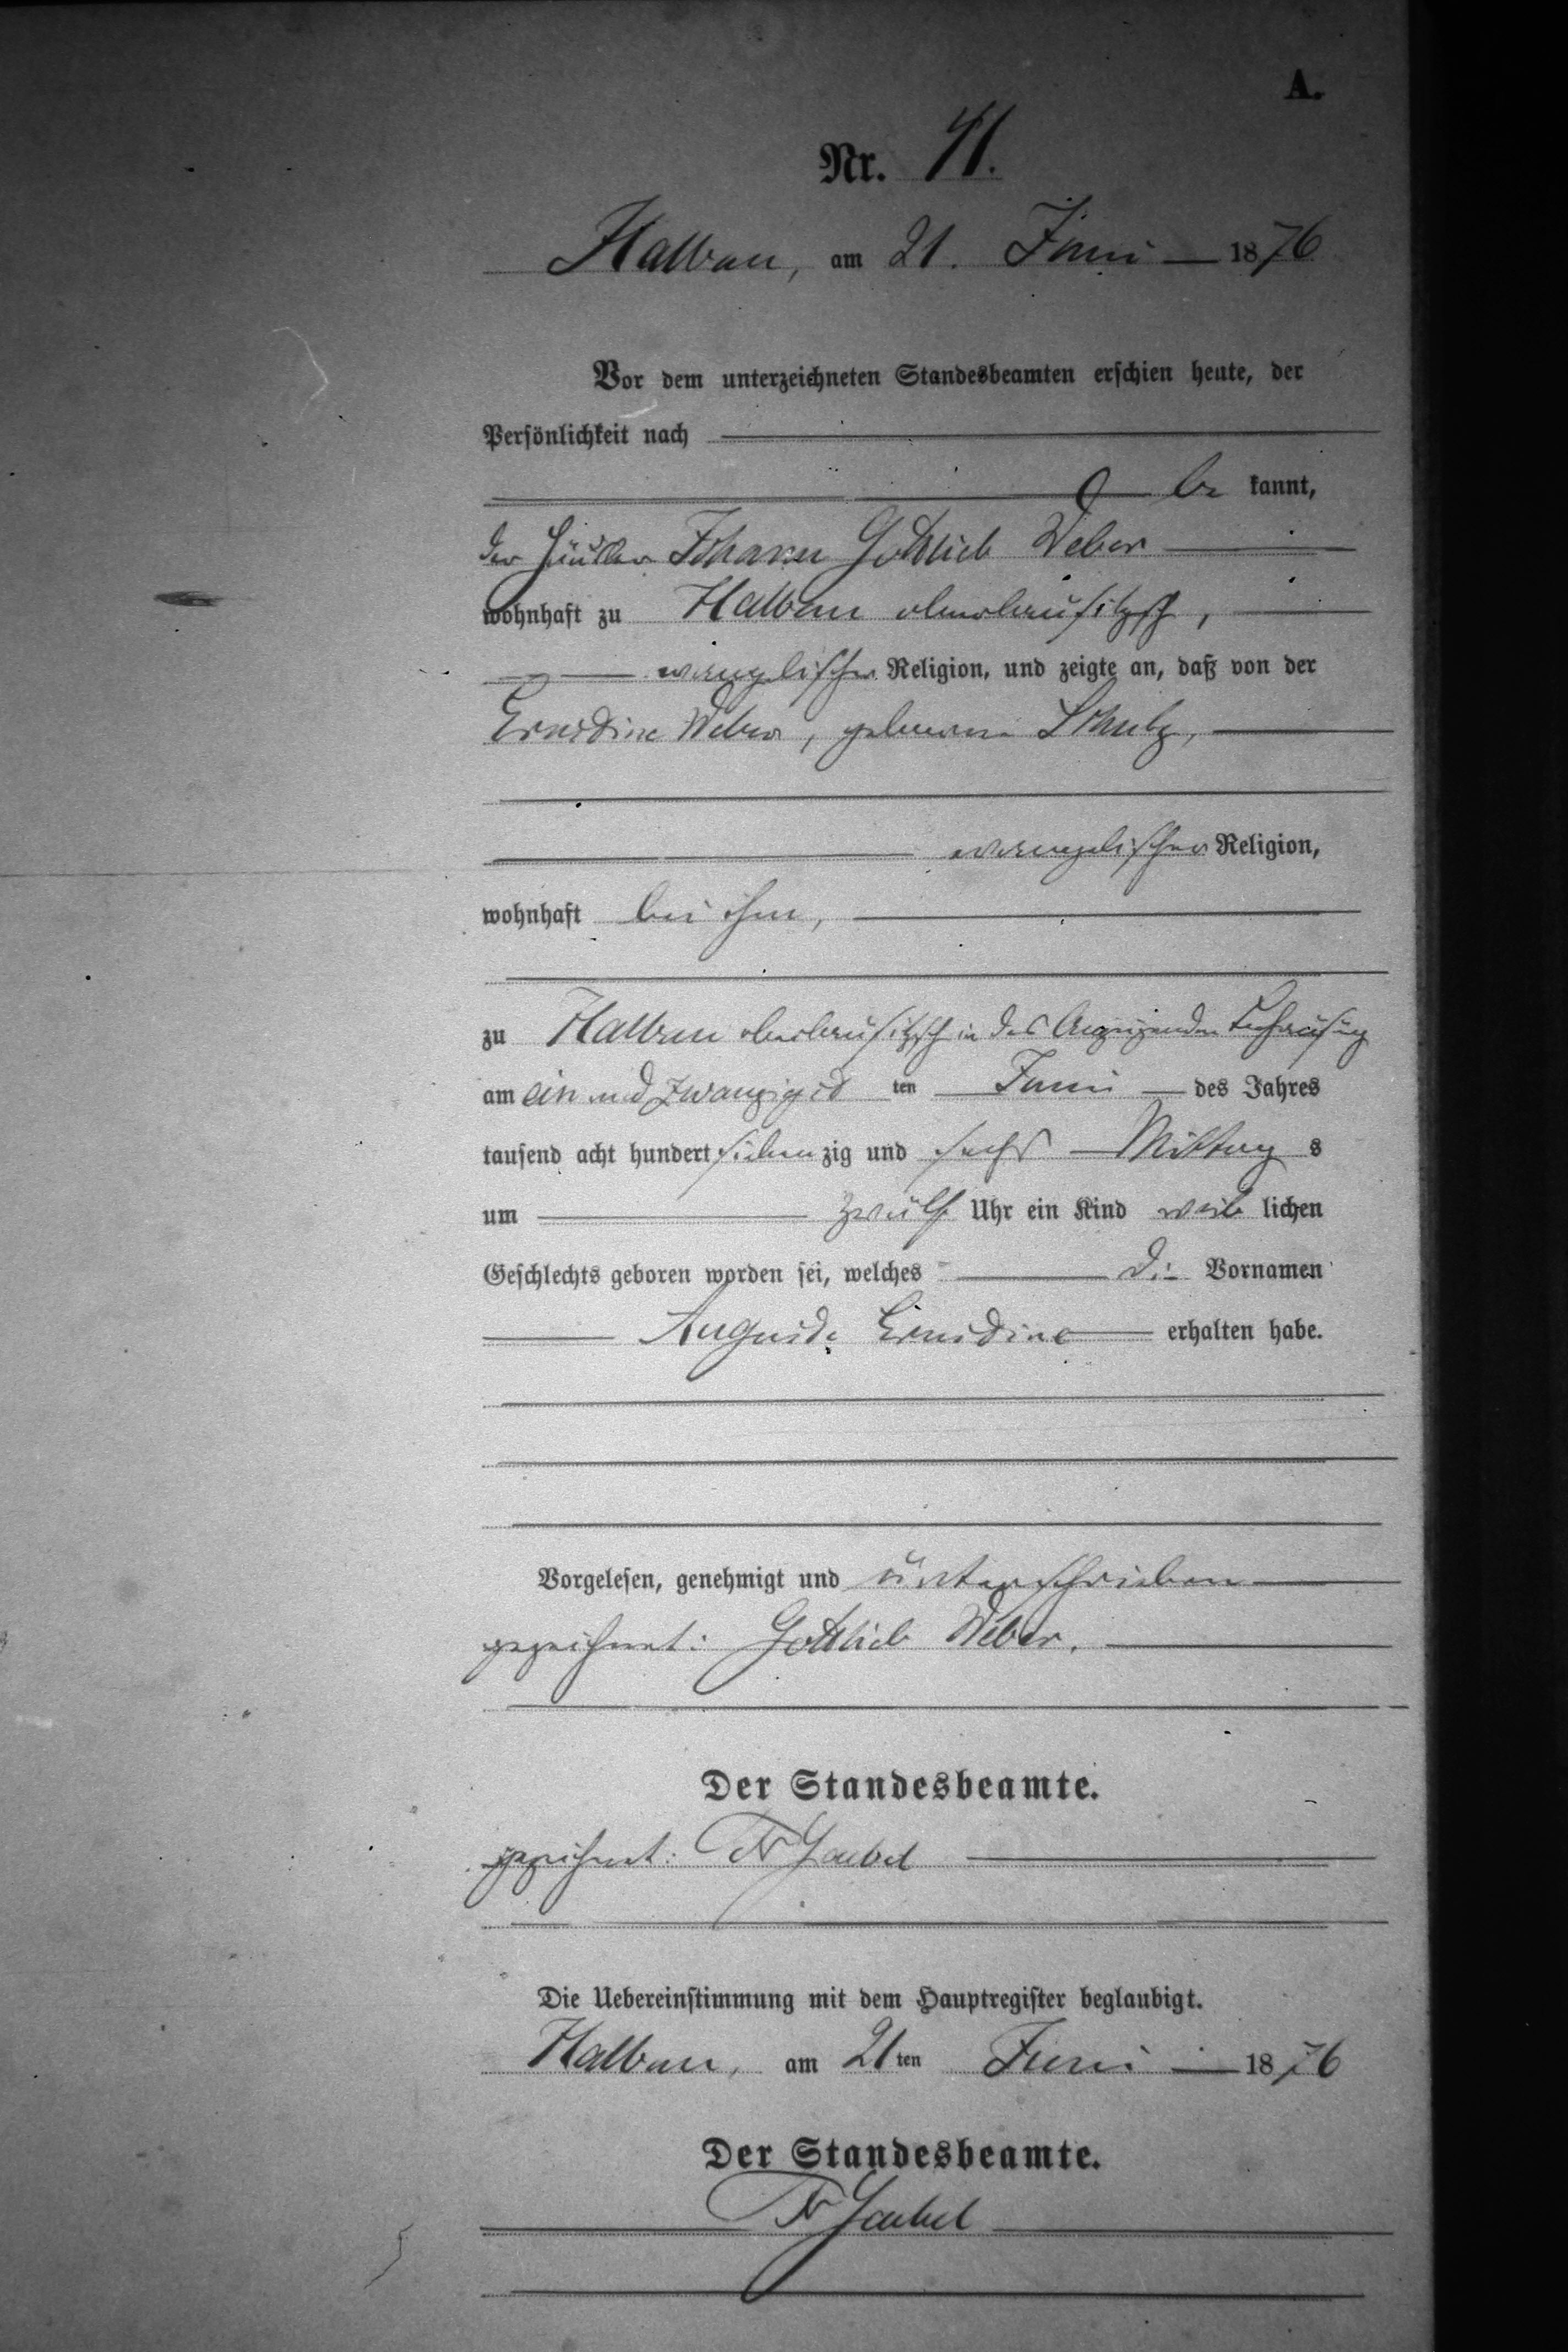 A.
Nr. 41.
Halbau, am 21. Juni 1876
Vor dem unterzeichneten Standesbeamten erschien heute, der
Persönlichkeit nach
be kannt,
der Häusler Johann Gottlieb Weber
wohnhaft zu Halbau
evangelischer Religion, und zeigte an, daß von der
Ernestine Weber, geborene Schulz,
evangelischer Religion,
wohnhaft bei ihm,
zu Halbau in des Anzeigenden Behausung
am ein und zwanzigst ten Juni des Jahres
tausend acht hundert sieben zig und sechs Mittag s
um zwölf Uhr ein Kind weib lichen
Geschlechts geboren worden sei, welches die Vornamen
Auguste Ernestine erhalten habe.
Vorgelesen, genehmigt und unterschrieben
gezeichnet: Gottlieb Weber.
Der Standesbeamte.
gezeichnet:
Die Uebereinstimmung mit dem Hauptregister beglaubigt.
Halbau, am 21ten Juni 1876
Der Standesbeamte.